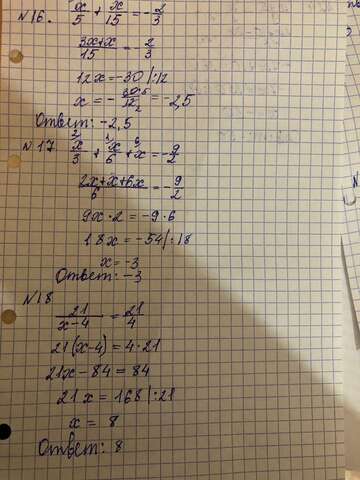 N16. x/5 + x/15 = -2/3
3x+x/15 = -2/3
12x = -30 |:12
x = -30/12 = -2,5
Ответ: -2,5
N17 x/3 + x/6 + x = -9/2
2x+x+6x/6 = -9/2
9x·2 = -9·6
18x = -54 |:18
x = -3
Ответ: -3
N18
21/x-4 = 21/4
21(x-4) = 4·21
21x-84 = 84
21x = 168 |:21
x = 8
Ответ: 8